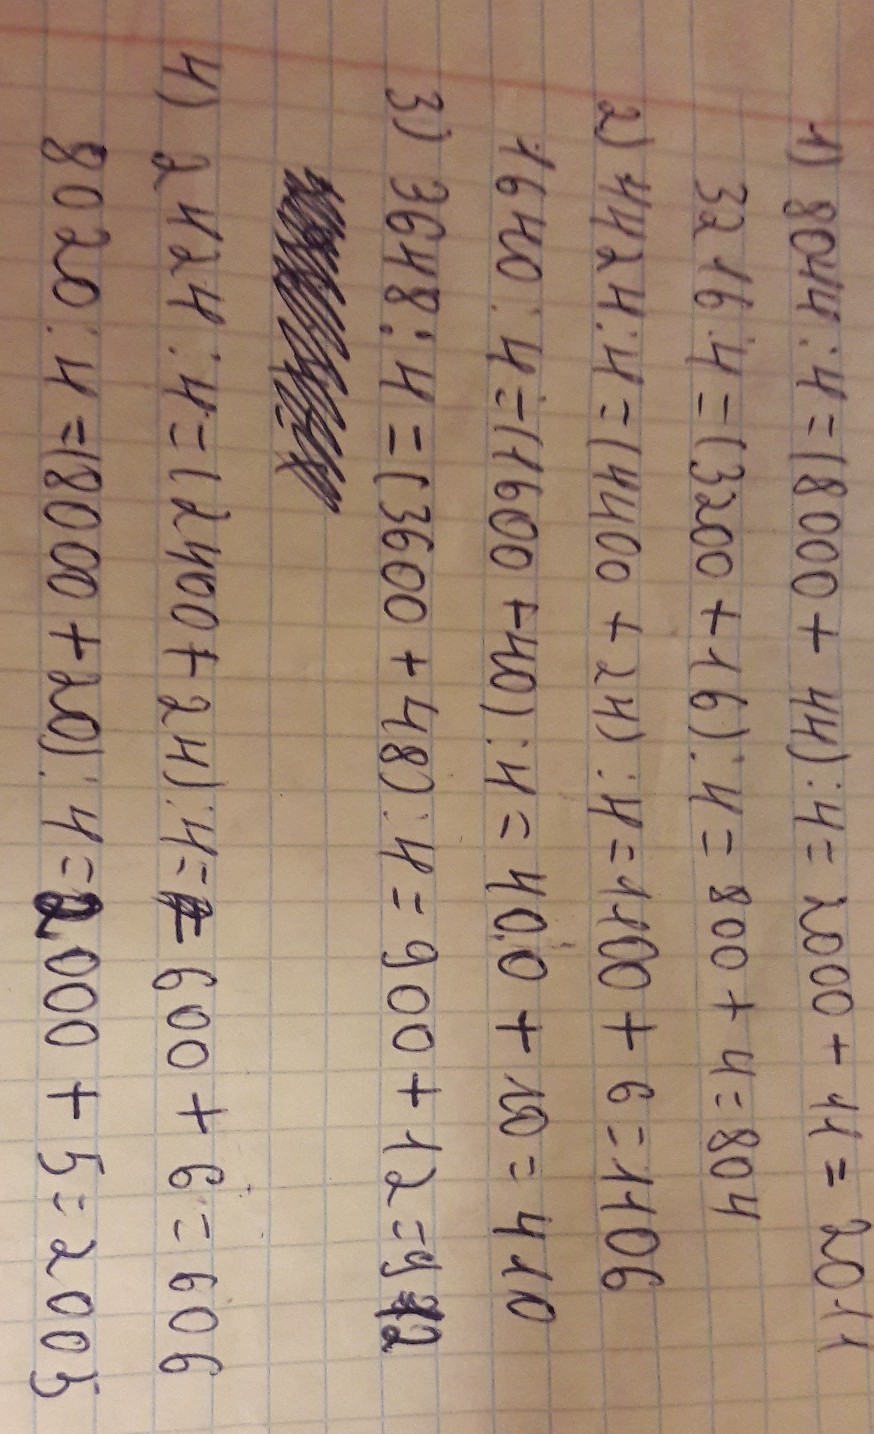 1) 8044 : 4 = (8000 + 44) : 4 = 2000 + 11 = 2011
3216 : 4 = (3200 + 16) : 4 = 800 + 4 = 804
2) 4424 : 4 = (4400 + 24) : 4 = 1100 + 6 = 1106
1640 : 4 = (1600 + 40) : 4 = 400 + 10 = 410
3) 3648 : 4 = (3600 + 48) : 4 = 900 + 12 = 912
4) 2424 : 4 = (2400 + 24) : 4 = 600 + 6 = 606
8020 : 4 = (8000 + 20) : 4 = 2000 + 5 = 2005